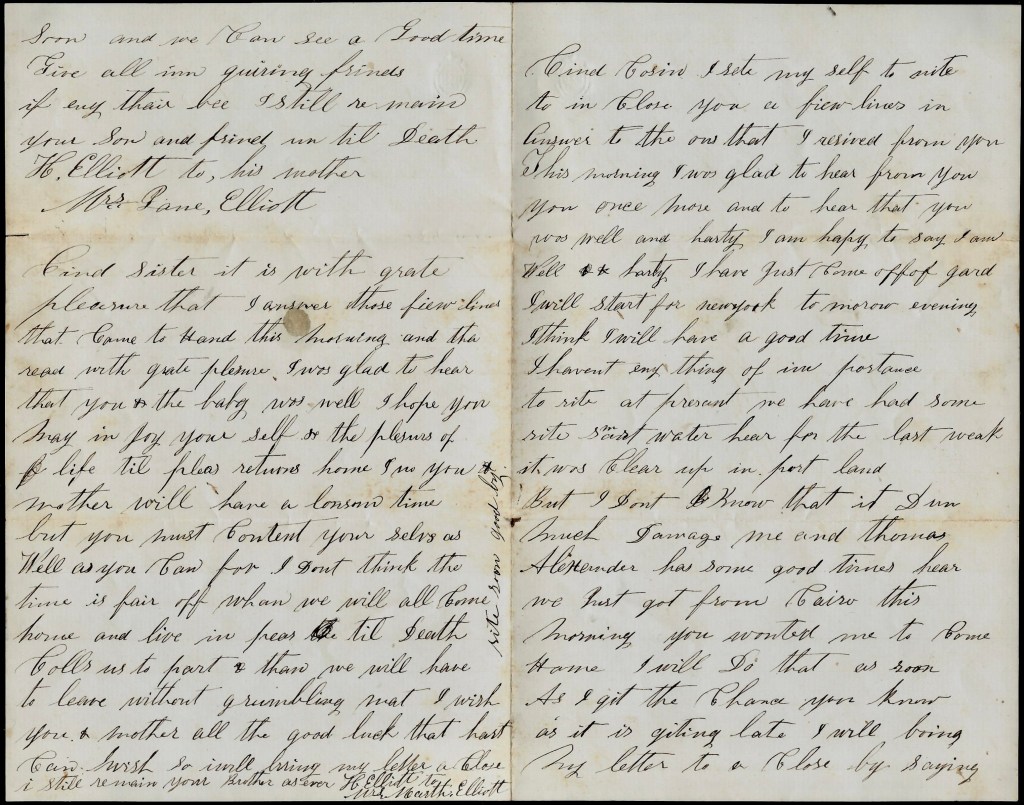 Soon and we Can see a Good time
Give all inn quiring frinds
if eny thair bee I still re main
your Son and frind un til Death
H. Elliott to, his mother
Mrs. Jane, Elliott
Cind sister it is with grate
pleasure that I answer those fiew lines
that Came to Hand this morning and tha
read with grate plesure I was glad to hear
that you & the baby was well I hope you
may in Joy your self & the plesurs of
life til pleas returns home I no you &
mother will have a lonsom time
but you must Content your selvs as
Well as you Can for I Dont think the
time is fair off whan we will all Come
home and live in peas til Death
Colls us to part & than we will have
to leave without grumbling mat I wish
you & mother all the good luck that hart
Can Wish so i will bring my letter a Close
i still remain your Brother as ever H Elliott to
Mrs. Marth. Elliott
rite soon good by
Cind Cosin I sete my self to nite
to in Close you a fiew lines in
Answer to the ons that I resived from you
This morning I was glad to hear from you
you once more and to hear that you
was well and harty I am hapy to say I am
Well & harty I have Just Come off of gard
I will start for newyork to morow evening
I think I will have a good time
I havent eny thing of im portance
to rite at present we have had some
rite smart water hear for the last weak
it was Clear up in port land
But I Dont Know that it Dun
much Damage me and thomas
Alexander has some good times hear
we Just got from Cairo this
morning you wonted me to Come
Home I will Do that as soon
As I git the Chance you know
as it is giting late I will bring
My letter to a Close by saying